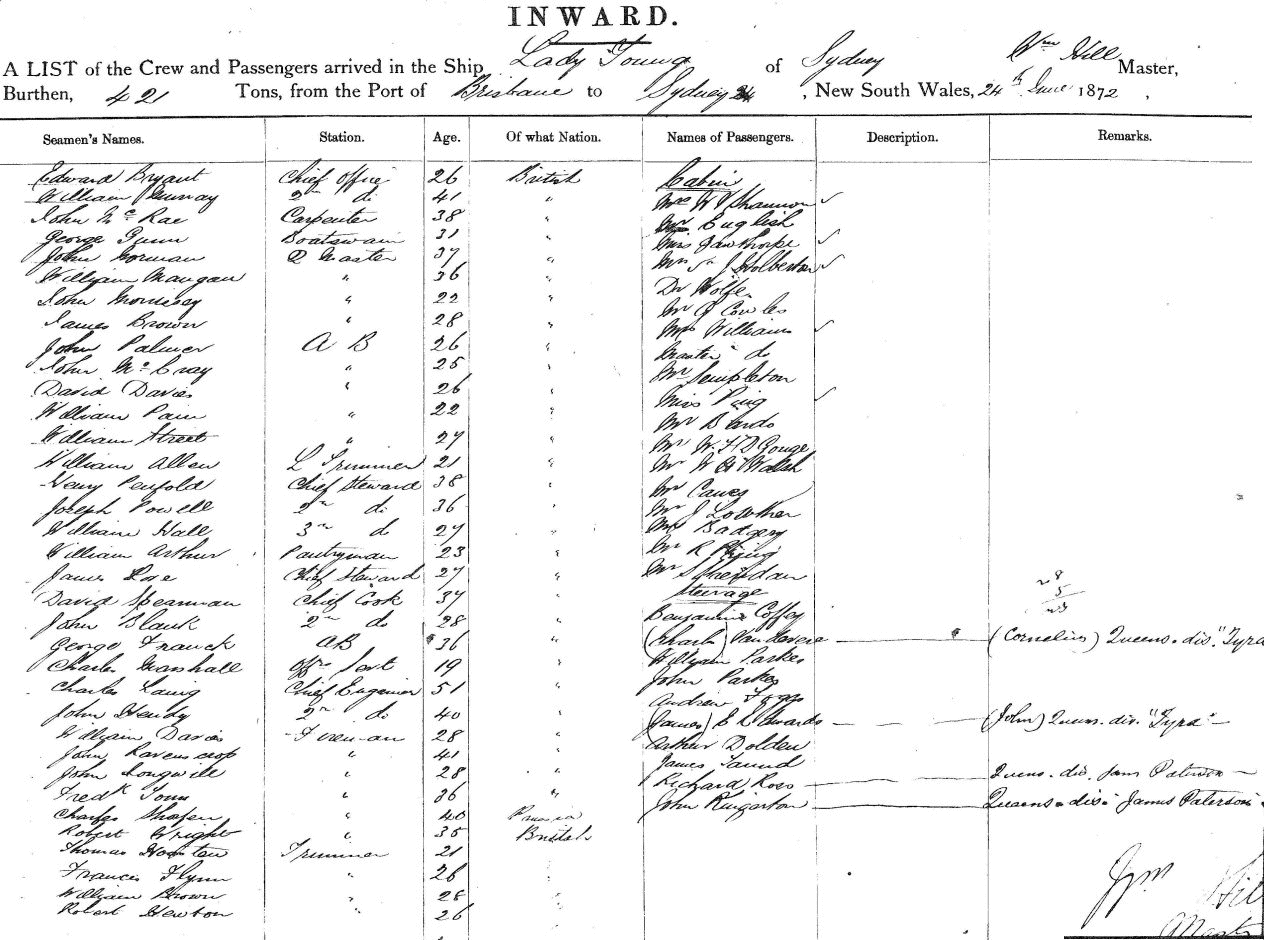 INWARD.
A LIST of the Crew and Passengers arrived in the Ship Lady Young of Sydney Wm Hill Master,
Burthen, 421 Tons, from the Port of Brisbane to Sydney , New South Wales, 24th June 1872 ,
Seamen's Names. Station. Age. Of what Nation. Names of Passengers. Description. Remarks.
Edward Bryant Chief Office 26 British Cabin
William Murray 2nd do 41 " Shannon
John McRae Carpenter 38 " English
George Gunn Boatswain 31 " Miss
John Gorman Q Master 37 " Mrs J Holberton
William Mangan " 36 " Dr Wolfe
John Morrisey " 22 " Mr G Cowles
James Brown " 28 " William
John Palmer A B 26 " Master do
John McCray " 25 " Mr Templeton
David Davies " 26 " Miss Ping
William Pain " 22 " Mr Bards
William Street " 27 " Mr W. F D Gouge
William Allen L Trimmer 21 " Mr W Walsh
Henry Penfold Chief Steward 38 " Mr
Joseph Powell 2nd do 36 " Mr J Lowther
William Hall 3rd do 27 " Badgery
William Arthur Pantryman 23 " Mr R
James Rae Chief Steward 27 " Mr Sheridan
David Spearman Chief Cook 37 " Steerage
John Blank 2nd do 28 " Benjamin Coffey
George Franck AB 36 " (Charles) (Cornelius) Queens. dis. "Tyra
Charles Marshall 19 " William Parkes
Charles Laing Chief Engineer 51 " John Parkes
John Hendy 2nd do 40 " Andrew
William Davis Fireman 28 " (James) Edwards (John) Queens. dis. "Tyra"
John Ravenscrop " 41 " Arthur Dolden
John Longwill " 28 " James
Fredk " 36 " Richard Ross Queens. dis. Jams Paterson
Charles " 40 Prussia John Queens. dis. James Paterson
Robert Wright " 35 British
Thomas Trimmer 21
Francis Flynn " 26
William Brown " 28
Robert Newton " 26
28
5
23
Wm Hill
Master